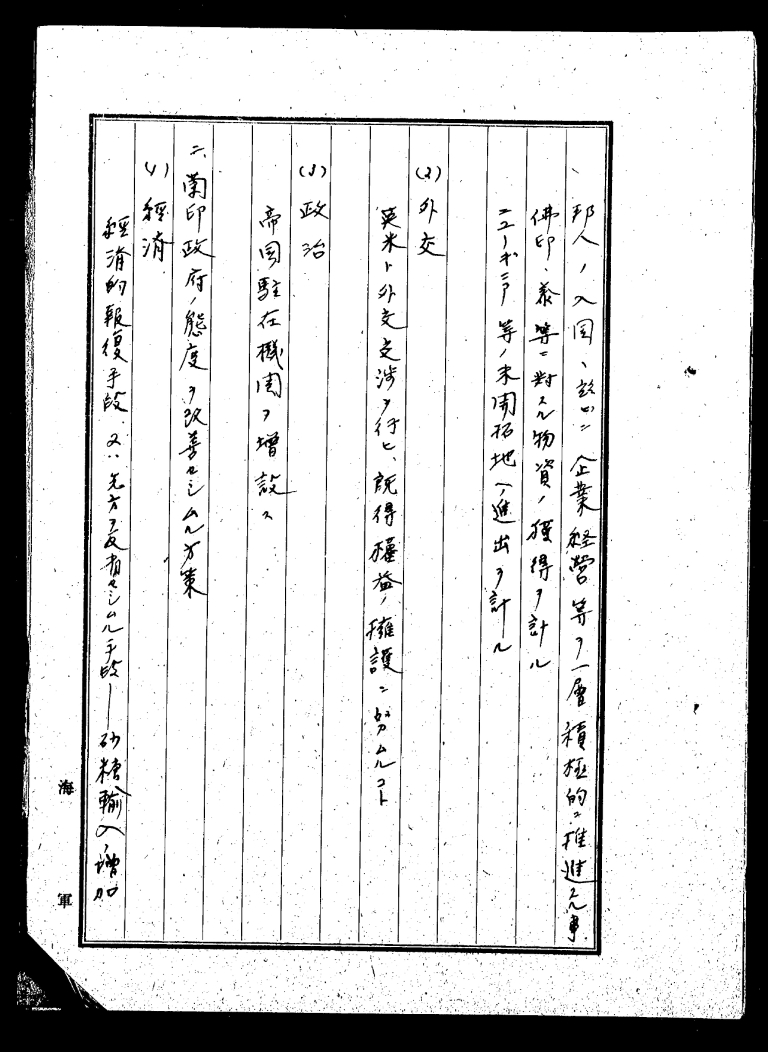 、邦人ノ入国、並ビニ企業経営等ヲ一層積極的ニ推進スル事
佛印、泰等ニ對スル物資ノ獲得ヲ計ル
ニューギニア等ノ未開拓地ヘ進出ヲ計ル
(2) 外交
英米ト外交交渉ヲ行ヒ、既得權益ノ擁護ニ努ムルコト
(3) 政治
帝国駐在機関ヲ増設ス
二、蘭印政府ノ態度ヲ改善セシムル方策
(1) 経済
経済的報復手段、又ハ先方ヲ反省セシムル手段——砂糖輸入ノ増加
海軍